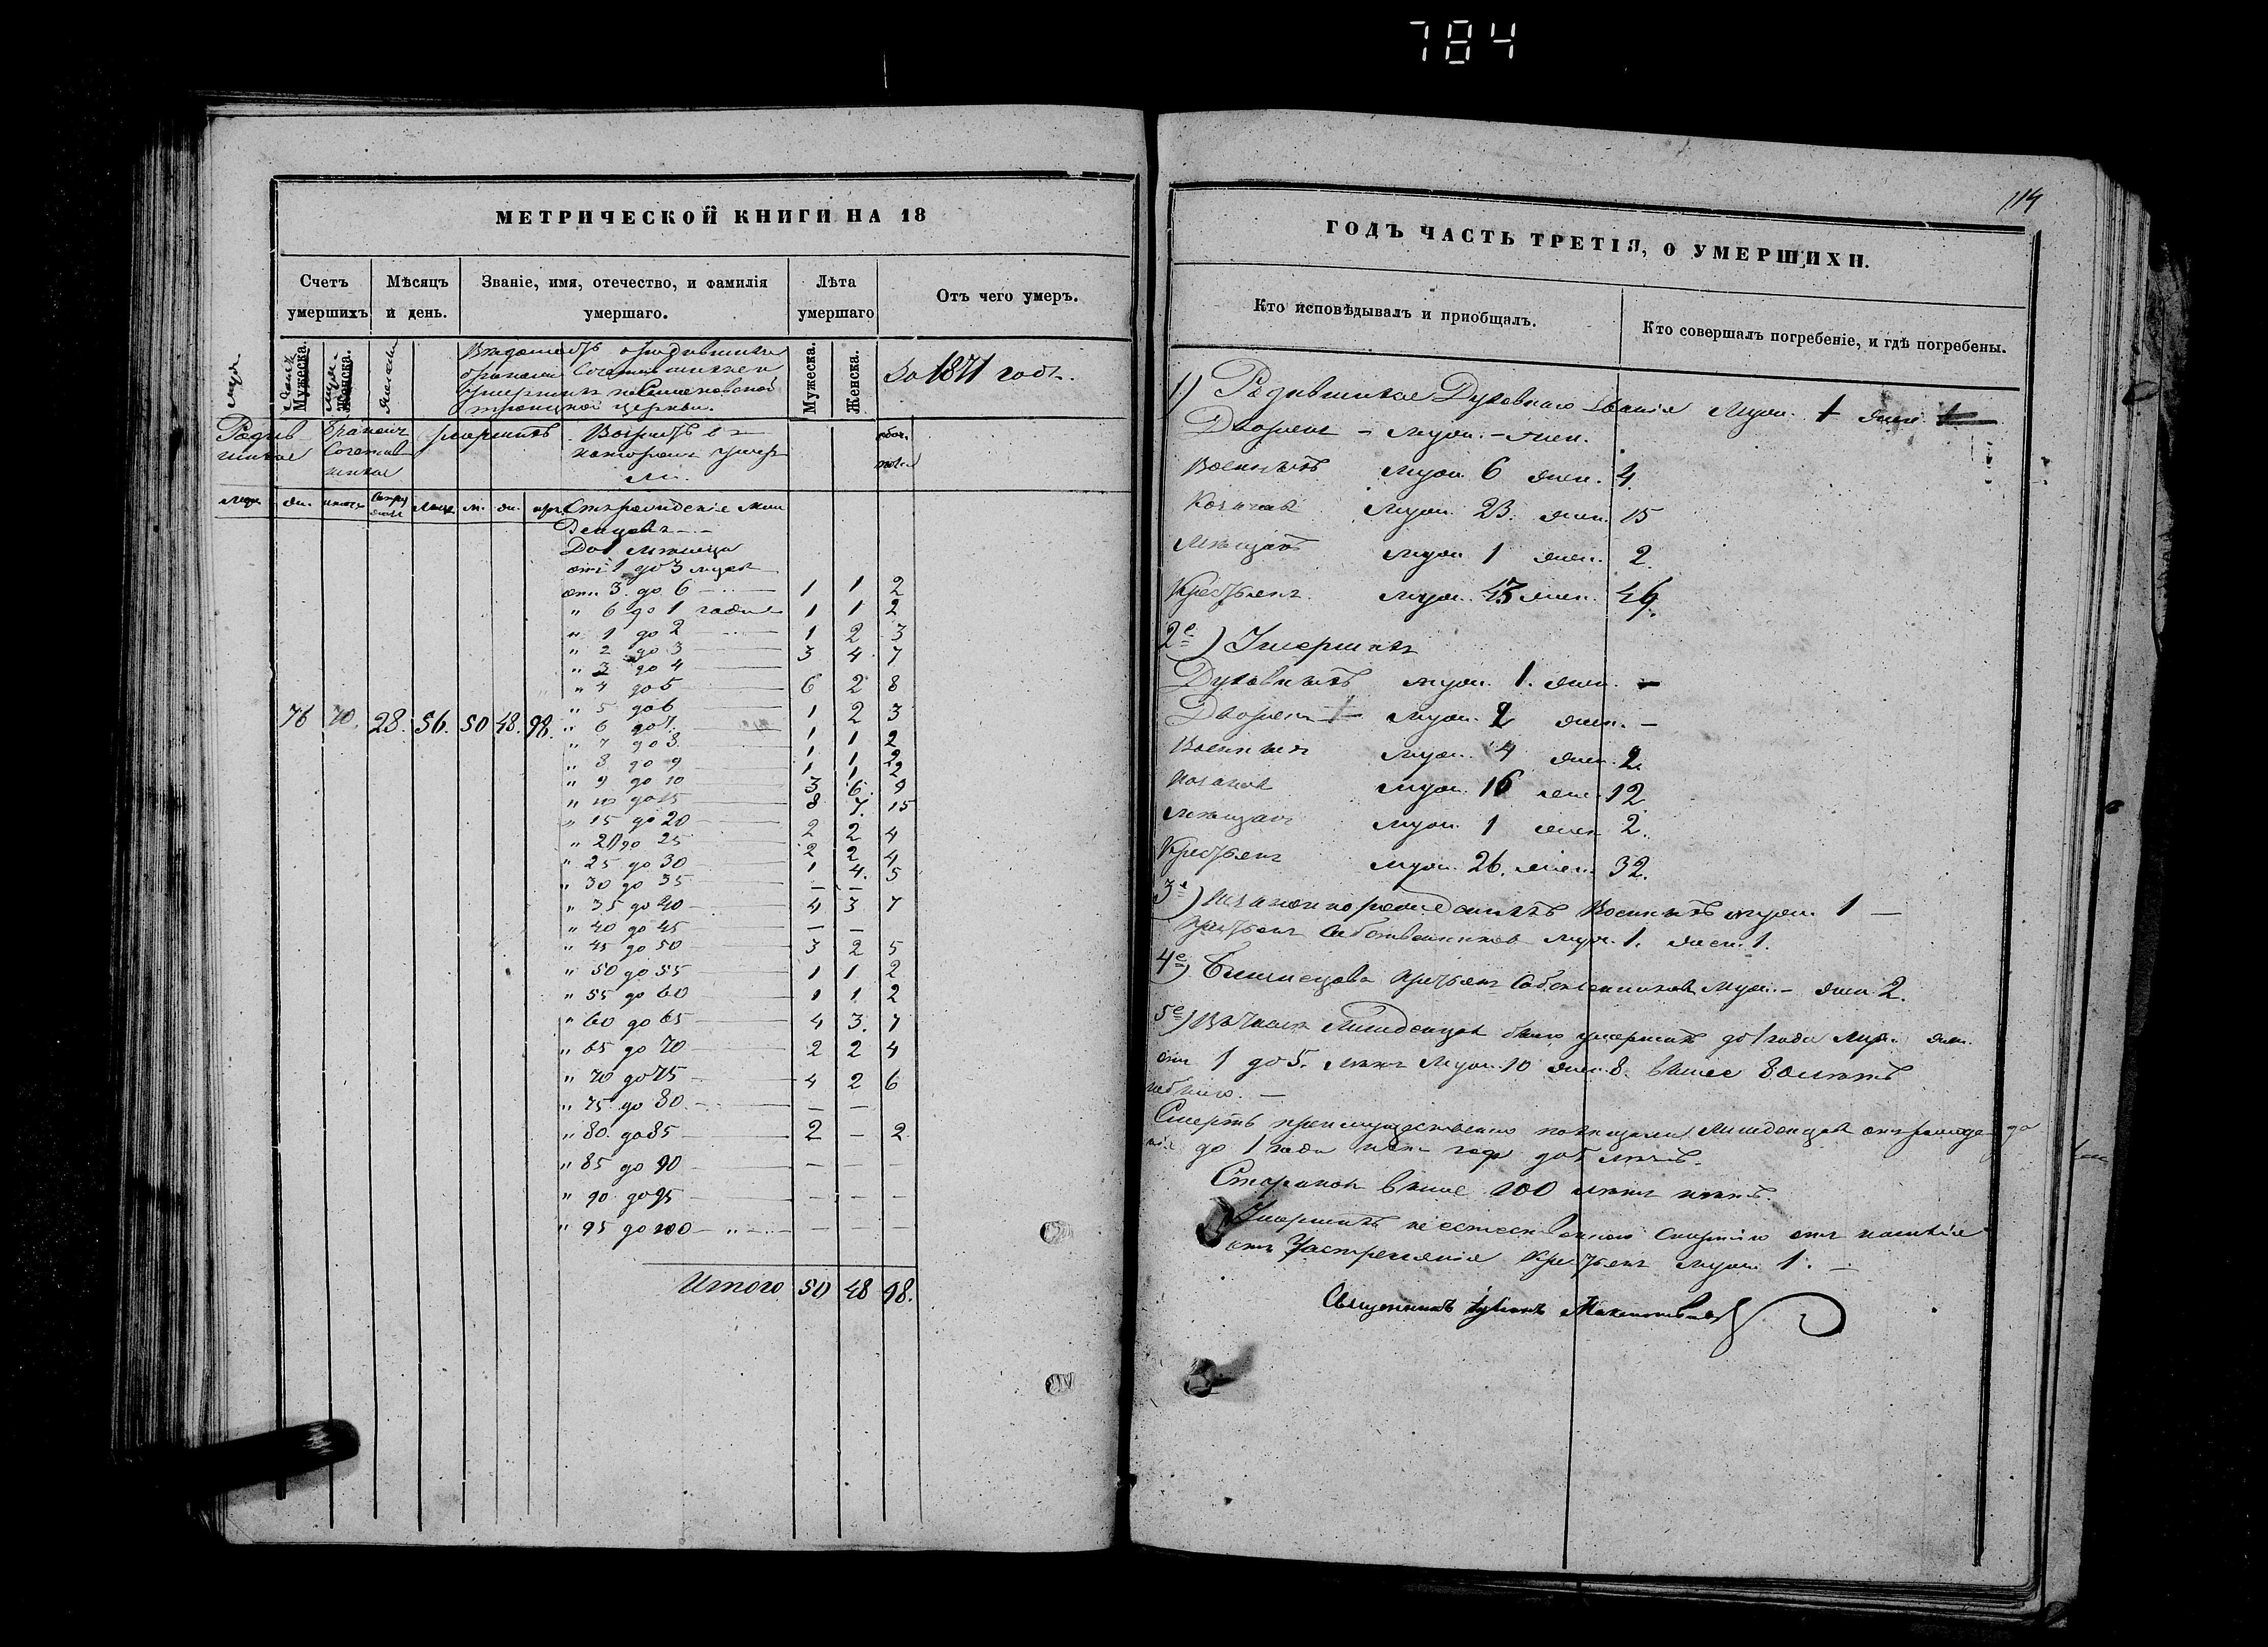 784
114
МЕТРИЧЕСКОЙ КНИГИ НА 18
Счетъ умершихъ
Мѣсяцъ и день.
Званіе, имя, отечество, и фамилія умершаго.
Лѣта умершаго
Отъ чего умеръ.
Мужеска.
Женска.
Мужеска.
Женска.
За 1871 годъ.
церкви.
до 1 мѣсяца
отъ 1 до 3
отъ 3 до 6 1 1 2
" 6 до 1 года 1 1 2
" 1 до 2 1 2 3
" 2 до 3 3 4 7
" 3 до 4
" 4 до 5 6 2 8
" 5 до 6 1 2 3
76 70. 28. 56. 50 48. 98.
" 6 до 7 1 1 2
" 7 до 8 1 1 2
" 8 до 9 1 1 2
" 9 до 10 3 6. 9
" 10 до 15 8 7. 15
" 15 до 20 2 2 4
" 20 до 25 2 2 4
" 25 до 30 1 4. 5
" 30 до 35 — —
" 35 до 40 4 3 7
" 40 до 45 — —
" 45 до 50 3 2 5
" 50 до 55 1 1 2
" 55 до 60 1 1 2
" 60 до 65 4 3. 7
" 65 до 70 2 2 4
" 70 до 75 4 2 6
" 75 до 80 — —
" 80 до 85 2 — 2.
" 85 до 90 — — —
" 90 до 95 — — —
" 95 до 100 — — —
Итого 50 48 98.
ГОДЪ ЧАСТЬ ТРЕТІЯ, О УМЕРШИХЪ.
Кто исповѣдывалъ и пріобщалъ.
Кто совершалъ погребеніе, и гдѣ погребены.
1) Родившихся Духовнаго званія муж. 1 жен.
Дворянъ - муж. - жен.
Военныхъ муж. 6 жен. 4.
Козаковъ муж. 23. жен. 15
Мѣщанъ муж. 1 жен. 2.
Крестьянъ муж. 45 жен. 49.
2е) Умершихъ
Духовныхъ муж. 1. жен. —
Дворянъ муж. 2 жен. —
Военныхъ муж. 4 жен. 2.
Козаковъ муж. 16 жен. 12
Мѣщанъ муж. 1 жен. 2.
Крестьянъ муж. 26. жен. 32.
3е) Незаконнорожденныхъ Военныхъ муж. 1 —
Крестьянъ Собственниковъ муж. 1. жен. 1.
4е) Близнецовъ Крестьянъ Собственниковъ муж. — жен. 2.
5е) Въ числѣ Младенцевъ было умершихъ до 1 года муж. жен.
отъ 1 до 5. лѣтъ муж. 10 жен. 8. выше 80 лѣтъ
небыло. —
Смерть преимущественно младенцевъ отъ
до 1 года до 5 лѣтъ.
Стариковъ выше 100 лѣтъ нѣтъ.
Умершихъ неестественною смертію
отъ Застреленія Крестьянъ муж. 1. —
Священникъ